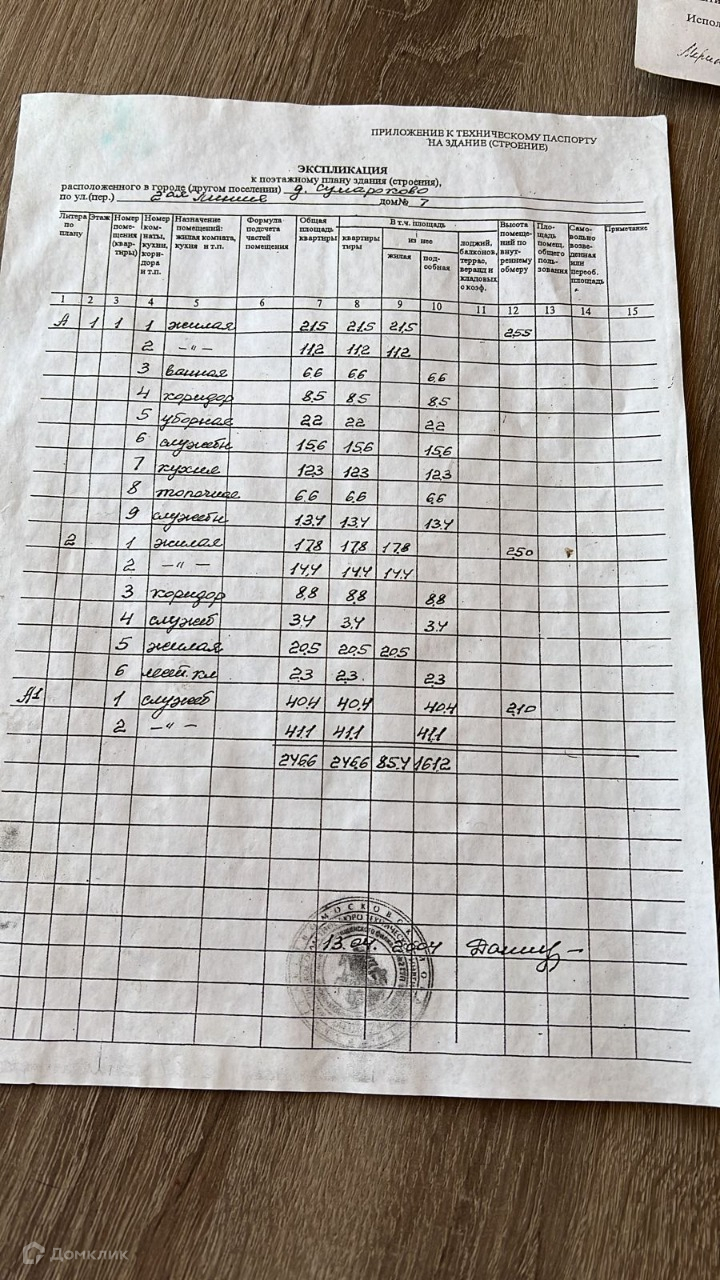 Испол
ПРИЛОЖЕНИЕ К ТЕХНИЧЕСКОМУ ПАСПОРТУ
НА ЗДАНИЕ (СТРОЕНИЕ)
ЭКСПЛИКАЦИЯ
к поэтажному плану здания (строения),
расположенного в городе (другом поселении) д. Сумароково
по ул.(пер.) 2ая линия дом№ 7
Литера по плану Этаж Номер поме- щения (квар- тиры) Номер ком- наты, кухни, кори- дора и т.п. Назначение помещений: жилая комната, кухня и т.п. Формула подсчета частей помещения Общая площадь квартиры В т.ч. площадь квартиры тиры из нее жилая под- собная лоджий, балконов, террас, веранд и кладовых с коэф. Высота помеще- ний по внут- реннему обмеру Пло- щадь помещ. общего поль- зования Само- вольно возве- денная или переоб. площадь Примечание
1 2 3 4 5 6 7 8 9 10 11 12 13 14 15
А 1 1 1 жилая 21,5 21,5 21,5 2,55
2 —"— 11,2 11,2 11,2
3 ванная 6,6 6,6 6,6
4 коридор 8,5 8,5 8,5
5 уборная 2,2 2,2 2,2
6 служебн 15,6 15,6 15,6
7 кухня 12,3 12,3 12,3
8 топочная 6,6 6,6 6,6
9 служебн 13,4 13,4 13,4
2 1 жилая 17,8 17,8 17,8 2,50
2 —"— 14,4 14,4 14,4
3 коридор 8,8 8,8 8,8
4 служеб 3,4 3,4 3,4
5 жилая 20,5 20,5 20,5
6 лест. кл 2,3 2,3 2,3
А1 1 служеб 40,4 40,4 40,4 2,10
2 —"— 41,1 41,1 41,1
246,6 246,6 85,4 161,2
13.04. 2004
Домклик